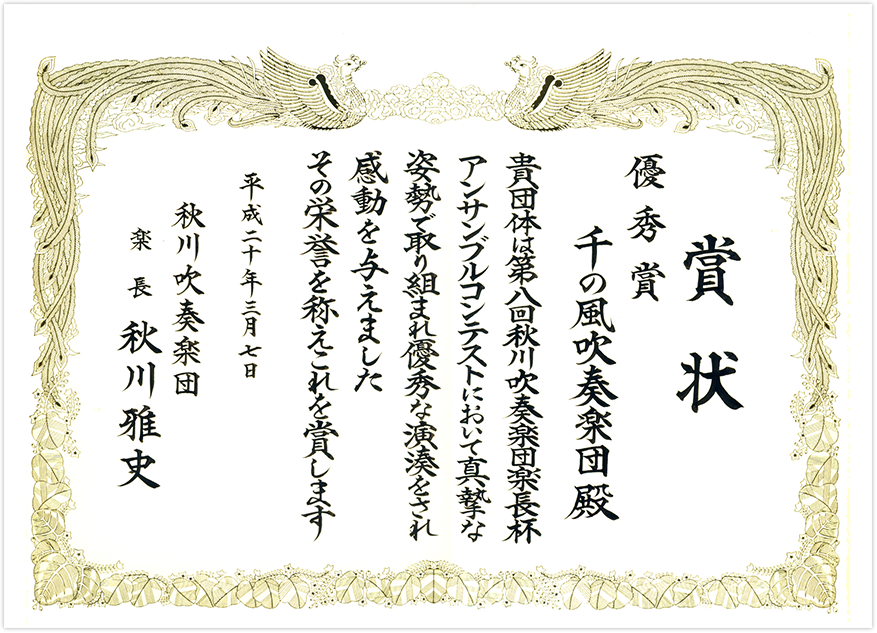 賞状
優秀賞
千の風吹奏楽団殿
貴団体は第八回秋川吹奏楽団楽長杯
アンサンブルコンテストにおいて真摯な
姿勢で取り組まれ優秀な演湊をされ
感動を与えました
その栄誉を称えこれを賞します
平成二十年三月七日
秋川吹奏楽団
楽長 秋川雅史